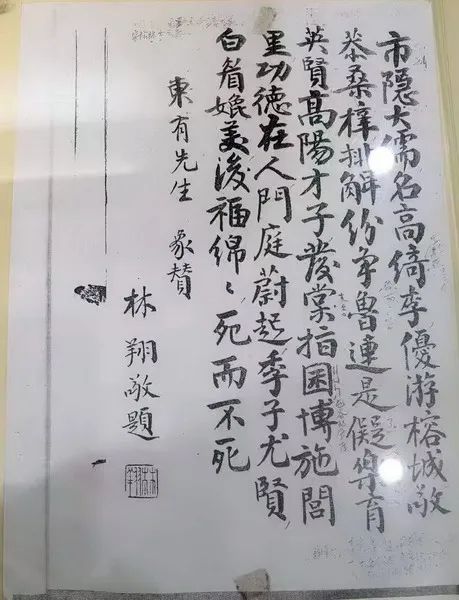 市隱大儒名高綺季優游榕城敬
恭桑梓排解紛爭魯連是儗育
英賢高陽才子發棠指囷博施閭
里功德在人門庭蔚起季子尤賢
白眉媲美後福綿〻死而不死
東有先生 象贊
林翔敬題